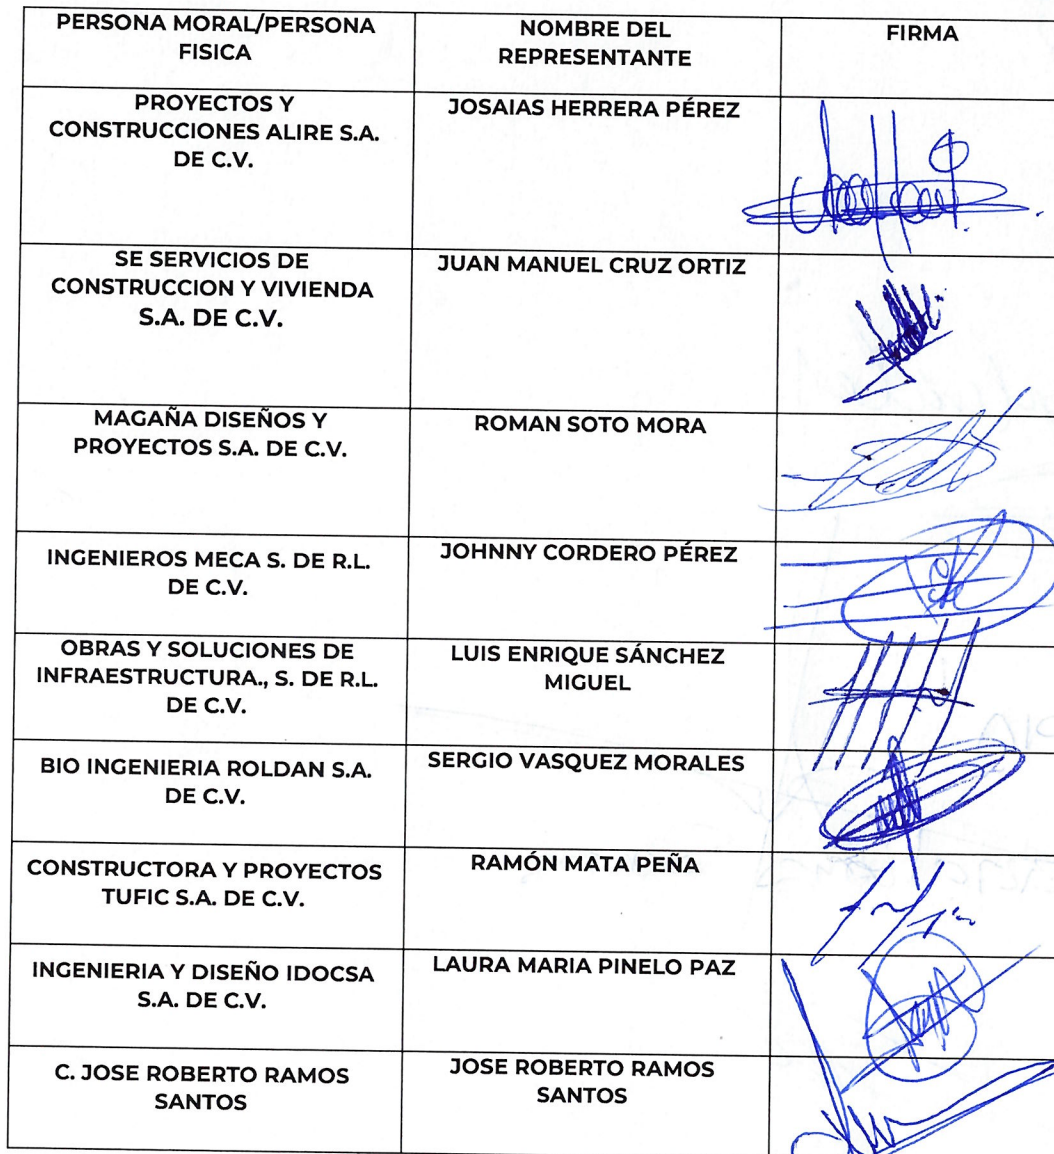 PERSONA MORAL/PERSONA
FISICA
NOMBRE DEL
REPRESENTANTE
FIRMA
PROYECTOS Y
CONSTRUCCIONES ALIRE S.A.
DE C.V.
JOSAIAS HERRERA PÉREZ
SE SERVICIOS DE
CONSTRUCCION Y VIVIENDA
S.A. DE C.V.
JUAN MANUEL CRUZ ORTIZ
MAGAÑA DISEÑOS Y
PROYECTOS S.A. DE C.V.
ROMAN SOTO MORA
INGENIEROS MECA S. DE R.L.
DE C.V.
JOHNNY CORDERO PÉREZ
OBRAS Y SOLUCIONES DE
INFRAESTRUCTURA., S. DE R.L.
DE C.V.
LUIS ENRIQUE SÁNCHEZ
MIGUEL
BIO INGENIERIA ROLDAN S.A.
DE C.V.
SERGIO VASQUEZ MORALES
CONSTRUCTORA Y PROYECTOS
TUFIC S.A. DE C.V.
RAMÓN MATA PEÑA
INGENIERIA Y DISEÑO IDOCSA
S.A. DE C.V.
LAURA MARIA PINELO PAZ
C. JOSE ROBERTO RAMOS
SANTOS
JOSE ROBERTO RAMOS
SANTOS